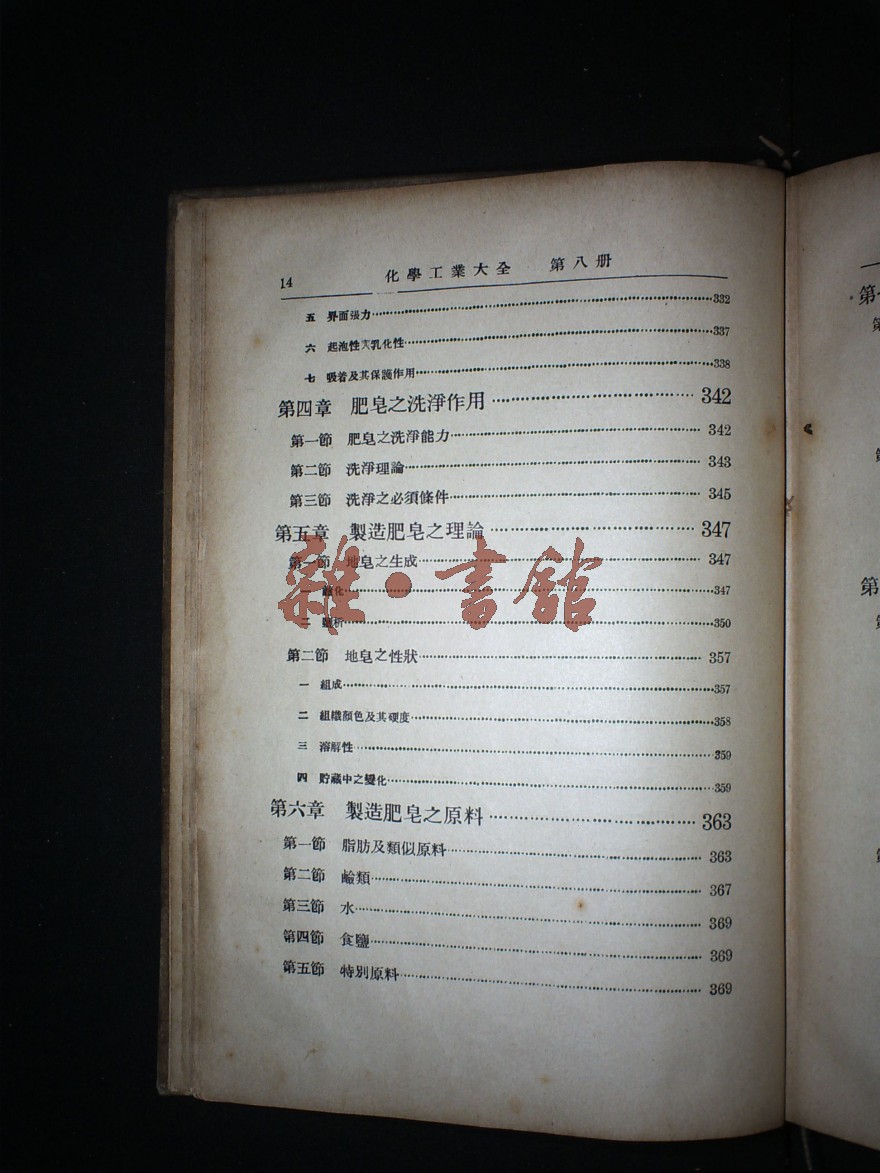 14 化學工業大全 第八册
五 界面張力 332
六 起泡性及乳化性 337
七 吸着及其保護作用 338
第四章 肥皂之洗淨作用 342
第一節 肥皂之洗淨能力 342
第二節 洗淨理論 343
第三節 洗淨之必須條件 345
第五章 製造肥皂之理論 347
第一節 地皂之生成 347
一 鹼化 347
二 鹽析 350
第二節 地皂之性狀 357
一 組成 357
二 組織顏色及其硬度 358
三 溶解性 359
四 貯藏中之變化 359
第六章 製造肥皂之原料 363
第一節 脂肪及類似原料 363
第二節 鹼類 367
第三節 水 369
第四節 食鹽 369
第五節 特別原料 369
雜·書館
第
第